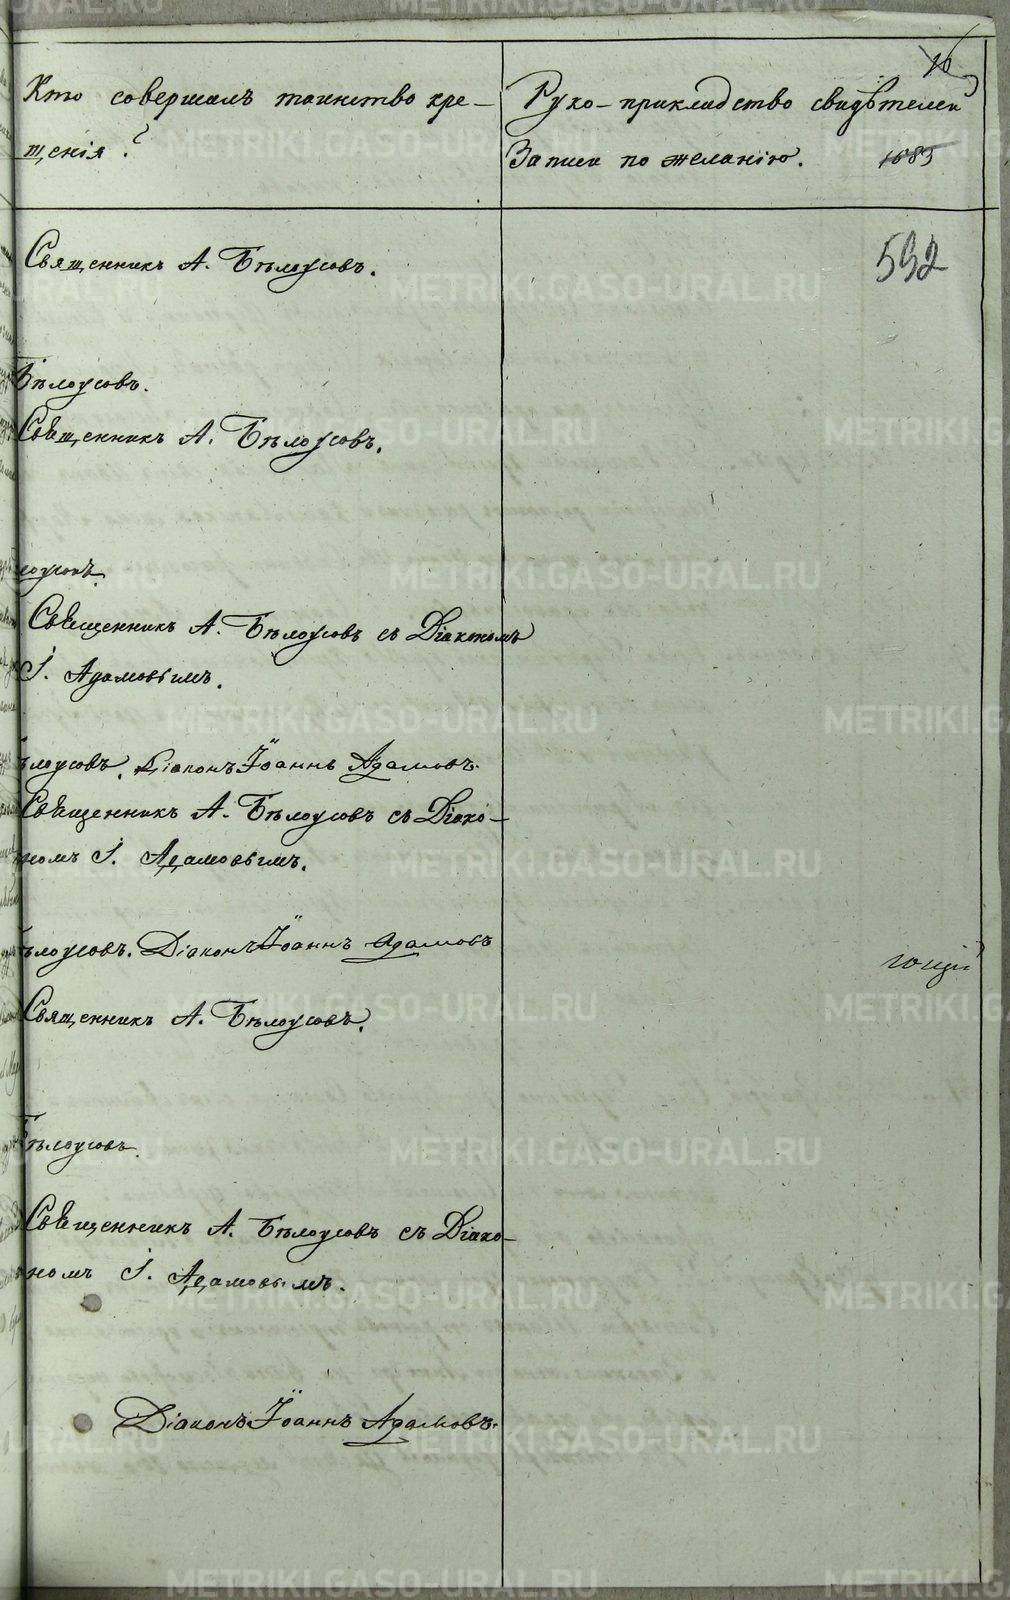 16
Кто совершалъ таинство кре-
щенія?
Руко-прикладство свидѣтелей
Записи по желанію.
1685
592
Священникъ А. Бѣлоусовъ.
Бѣлоусовъ.
Священникъ А. Бѣлоусовъ.
лоусовъ.
Священникъ А. Бѣлоусовъ съ Діакономъ
І. Адамовымъ.
ѣлоусовъ. Діаконъ Іоаннъ Адамовъ.
Священникъ А. Бѣлоусовъ съ Діако-
номъ І. Адамовымъ.
ѣлоусовъ. Діаконъ Іоаннъ Адамовъ
ющій
Священникъ А. Бѣлоусовъ.
Бѣлоусовъ.
Священникъ А. Бѣлоусовъ съ Діако-
номъ І. Адамовымъ.
Діаконъ Іоаннъ Адамовъ.
METRIKI.GASO-URAL.RU